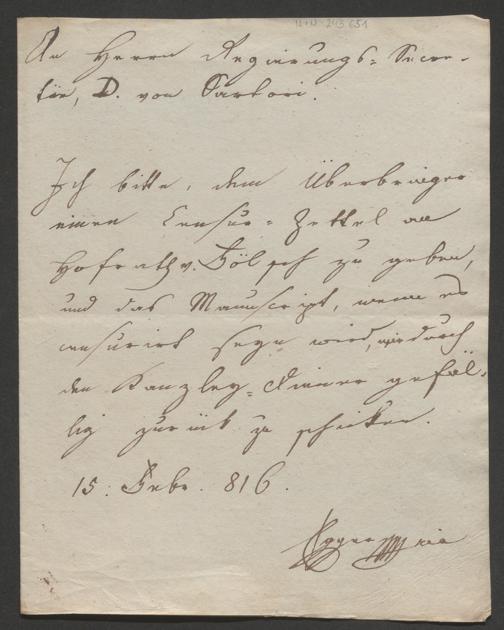 An Herrn Regierungs-Secre-
tär, D. von Sartori.
Ich bitte, dem Überbringer
einen Censur-Zettel an
Hofrath v. Fölsch zu geben,
und das Manuscript, wenn es
censurirt seyn wird, mir durch
den Kanzley-Diener gefäl-
lig zurück zu schicken.
15. Febr. 816.